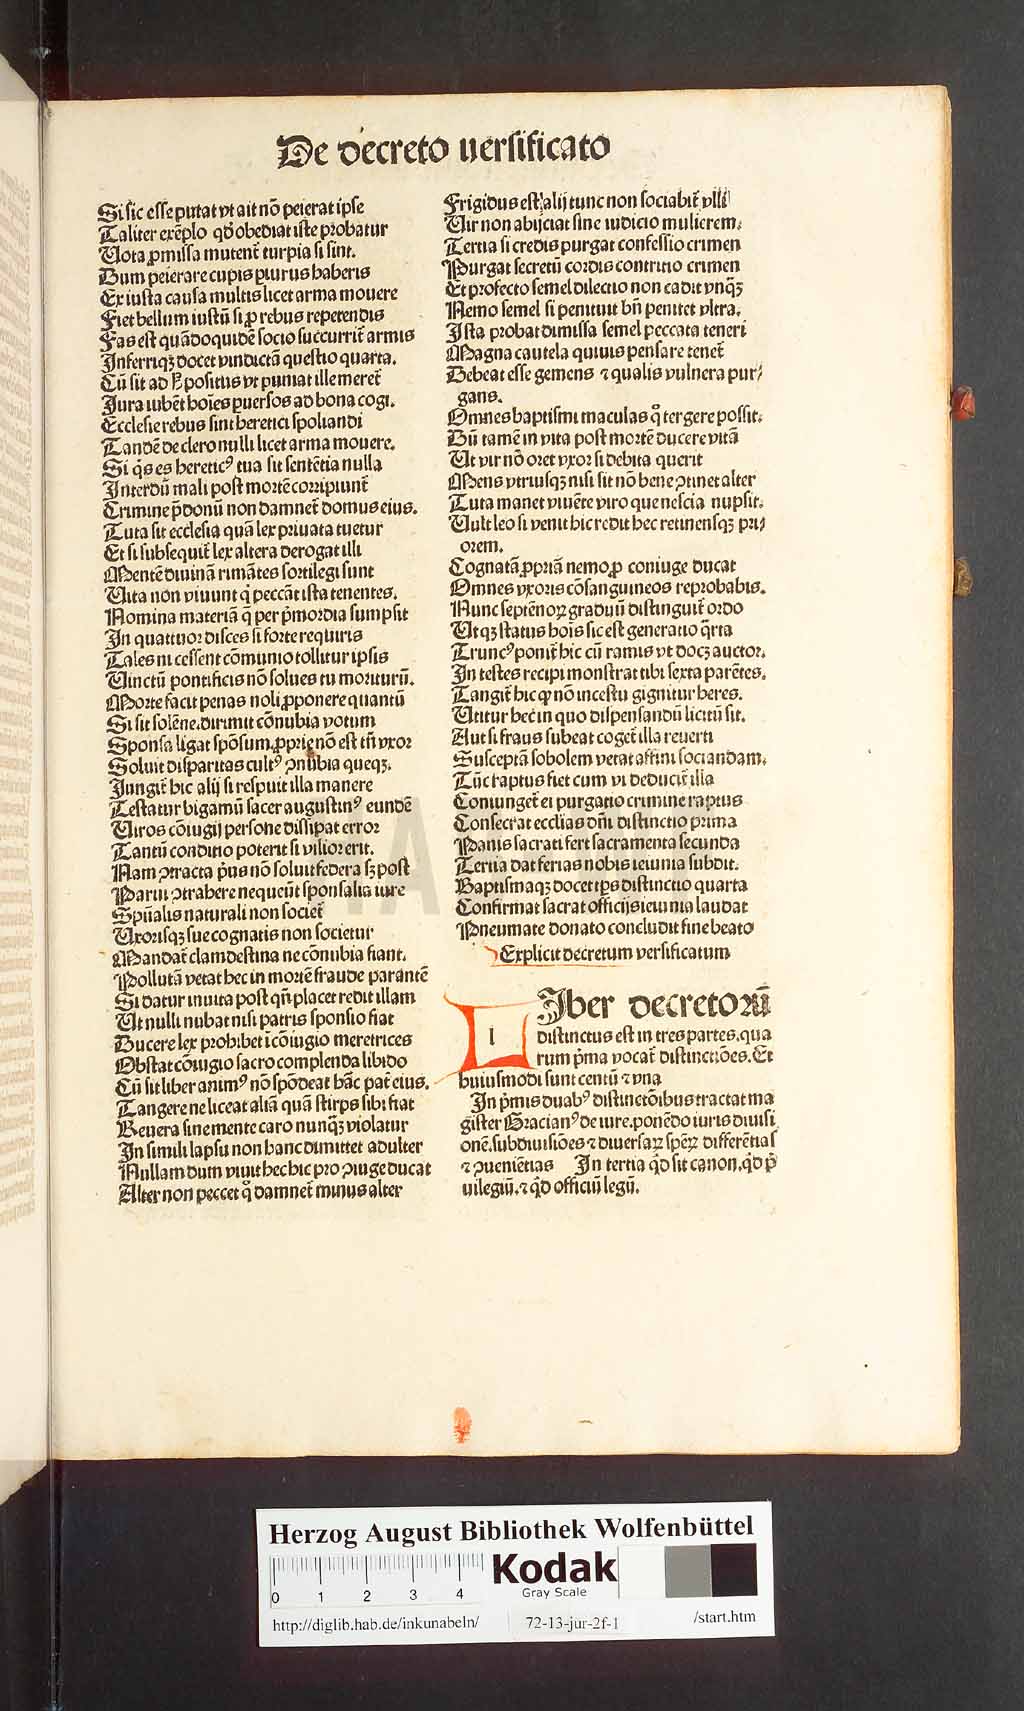 De decreto versificato
Si sic esse putat vt ait nō peierat ipse
Taliter exēplo qd̄ obediat iste probatur
Uota ꝓmissa mutent̄ turpia si sint.
Dum peierare cupis piurus haberis
Ex iusta causa multis licet arma mouere
Fiet bellum iustū si ꝓ rebus repetendis
Fas est quādoquidē socio succurrit̄ armis
Inferriqꝫ docet vindictā questio quarta.
Cū sit ad positus vt puniat ille meret̄
Jura iubēt hoīes puersos ad bona cogi.
Ecclesie rebus sint heretici spoliandi
Tandē de clero nulli licet arma mouere.
Si q̄s es hereticꝰ tua sit sentētia nulla
Interdū mali post mortē corripiunt̄
Crimine p̄donū non damnet̄ domus eius.
Tuta sit ecclesia quā lex priuata tuetur
Et si subsequit̄ lex altera derogat illi
Mentē diuinā rimātes sortilegi sunt
Uita non viuunt q̄ peccāt ista tenentes.
Nomina materiā q̄ per p̄mordia sumpsit
In quattuor disces si forte requiris
Tales ni cessent cōmunio tollitur ipsis
Uinctū pontificis nō solues tu moriturū.
Morte facit penas noli ꝓponere quantū
Si sit solēne. dirimit cōnubia votum
Sponsa ligat spōsum. ꝓprie nō est tn̄ vxor
Soluit disparitas cultꝰ ꝯnubia queqꝫ.
Jungit̄ hic alij si respuit illa manere
Testatur bigamū sacer augustinꝰ eundē
Uiros cōiugij persone dissipat error
Tantū conditio poterit si vilior erit.
Nam ꝯtracta p̄us nō soluit federa sꝫ post
Parui ꝯtrahere nequeūt sponsalia iure
Spūalis naturali non societ̄
Uxorisqꝫ sue cognatis non societur
Mandat̄ clamdestina ne cōnubia fiant.
Pollutā vetat hec in mortē fraude parantē
Si datur inuita post qn̄ placet redit illam
Ut nulli nubat nisi patris sponsio fiat
Ducere lex prohibet ī cōiugio meretrices
Obstat cōiugio sacro complenda libido
Cū sit liber animꝰ nō spōdeat hāc pat̄ eius.
Tangere ne liceat aliā quā stirps sibi fiat
Reuera sine mente caro nunqꝫ violatur
In simili lapsu non hanc dimittet adulter
Nullam dum viuit hec hic pro ꝯiuge ducat
Alter non peccet q̄ damnet̄ minus alter
Frigidus est alij tunc non sociabit̄ vlli
Uir non abijciat sine iudicio mulierem.
Tertia si credis purgat confessio crimen
Purgat secretū cordis contritio crimen
Et profecto semel dilectio non cadit vnqꝫ
Nemo semel si penituit bn̄ penitet vltra.
Ista probat dimissa semel peccata teneri
Magna cautela quiuis pensare tenet̄
Debeat esse gemens ⁊ qualis vulnera pur/
gans.
Omnes baptismi maculas q̄ tergere possit.
Dū tamē in vita post mortē ducere vitā
Ut vir nō oret vxor si debita querit
Mens vtriusqꝫ nisi sit nō bene ꝯtinet alter
Tuta manet viuēte viro que nescia nupsit.
Uult leo si venit hic redit hec retinensqꝫ pri/
orem.
Cognatā ꝓpriā nemo ꝓ coniuge ducat
Omnes vxoris cōsanguineos reprobabis.
Nunc septēnoꝝ graduū distinguit̄ ordo
Utqꝫ status hoīs sic est generatio q̄rta
Truncꝰ ponit̄ hic cū ramis vt docꝫ auctor.
In testes recipi monstrat tibi sexta parētes.
Tangit̄ hic qꝙ nō incestu gignitur heres.
Utitur hec in quo dispensandū licitū sit.
Aut si fraus subeat coget̄ illa reuerti
Susceptā sobolem vetat affini sociandam.
Tūc raptus fiet cum vi deducit̄ illa
Coniunget̄ ei purgatio crimine raptus
Consecrat ecclīas dn̄i distinctio prima
Panis sacrati fert sacramenta secunda
Tertia dat ferias nobis ieiunia subdit.
Baptismaqꝫ docet tp̄s distinctio quarta
Confirmat sacrat officijs ieiunia laudat
Pneumate donato concludit fine beato
Explicit decretum versificatum
l Iber decretorū
distinctus est in tres partes. qua
rum p̄ma vocat̄ distinctiōes. Et
huiusmodi sunt centū ⁊ vna
In p̄mis duabꝰ distinctōibus tractat ma
gister Gracianꝰ de iure. ponēdo iuris diuisi
onē. subdiuisiōes ⁊ diuersaꝝ speꝝ differētias
⁊ ꝯueniētias In tertia qd̄ sit canon. qd̄ p̄
uilegiū. ⁊ qd̄ officiū legū.
Herzog August Bibliothek Wolfenbüttel
0 1 2 3 4
Kodak
Gray Scale
http://diglib.hab.de/inkunabeln/ 72-13-jur-2f-1 /start.htm